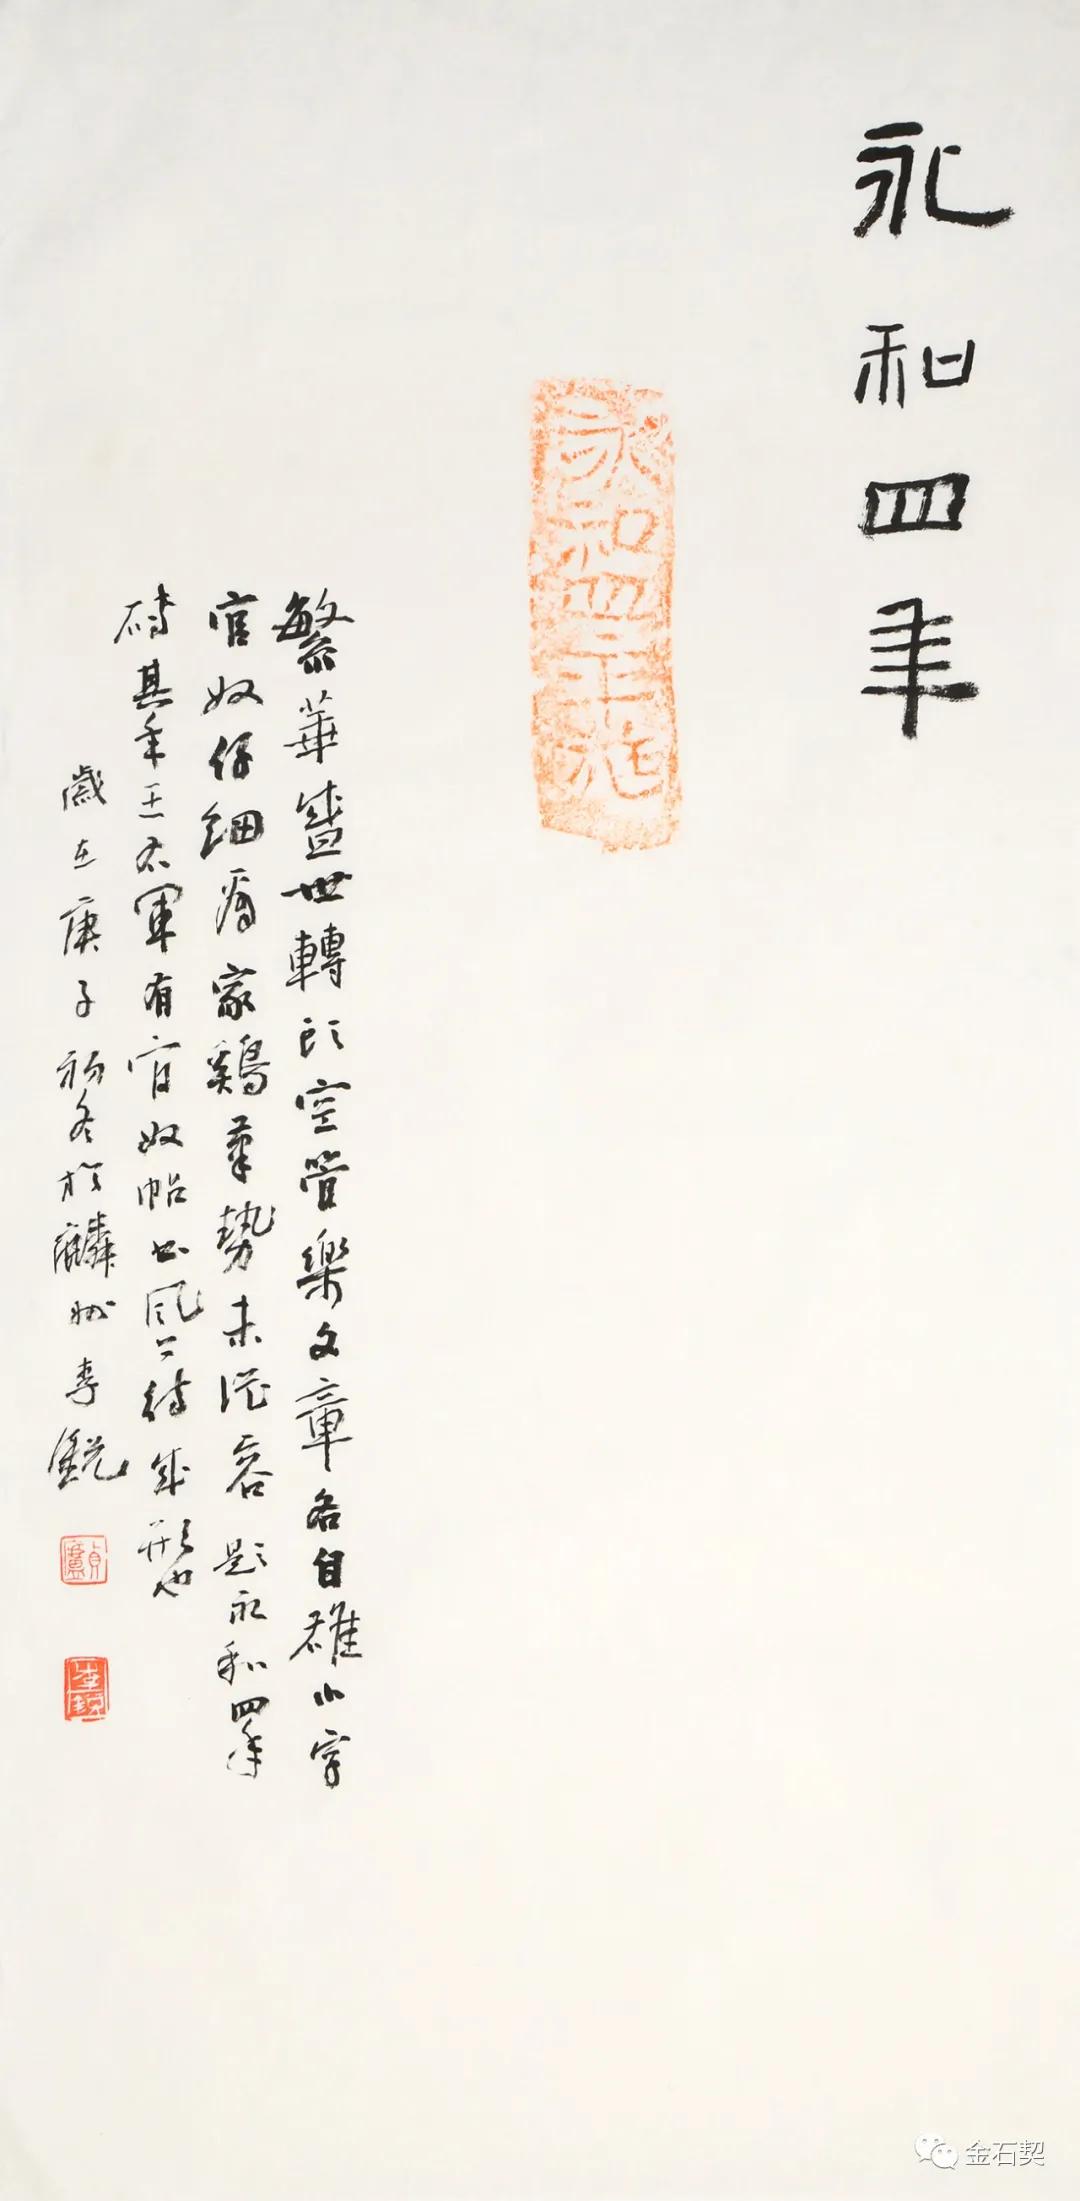 永和四年
永和四年
繁華盛世轉頭空管樂文章各自雄小字
官奴仔細看家鷄筆勢未從容題永和四年
磚其年王右軍有官奴帖書風
成形也
歲在庚子初冬於麟州李銳
李銳
金石契